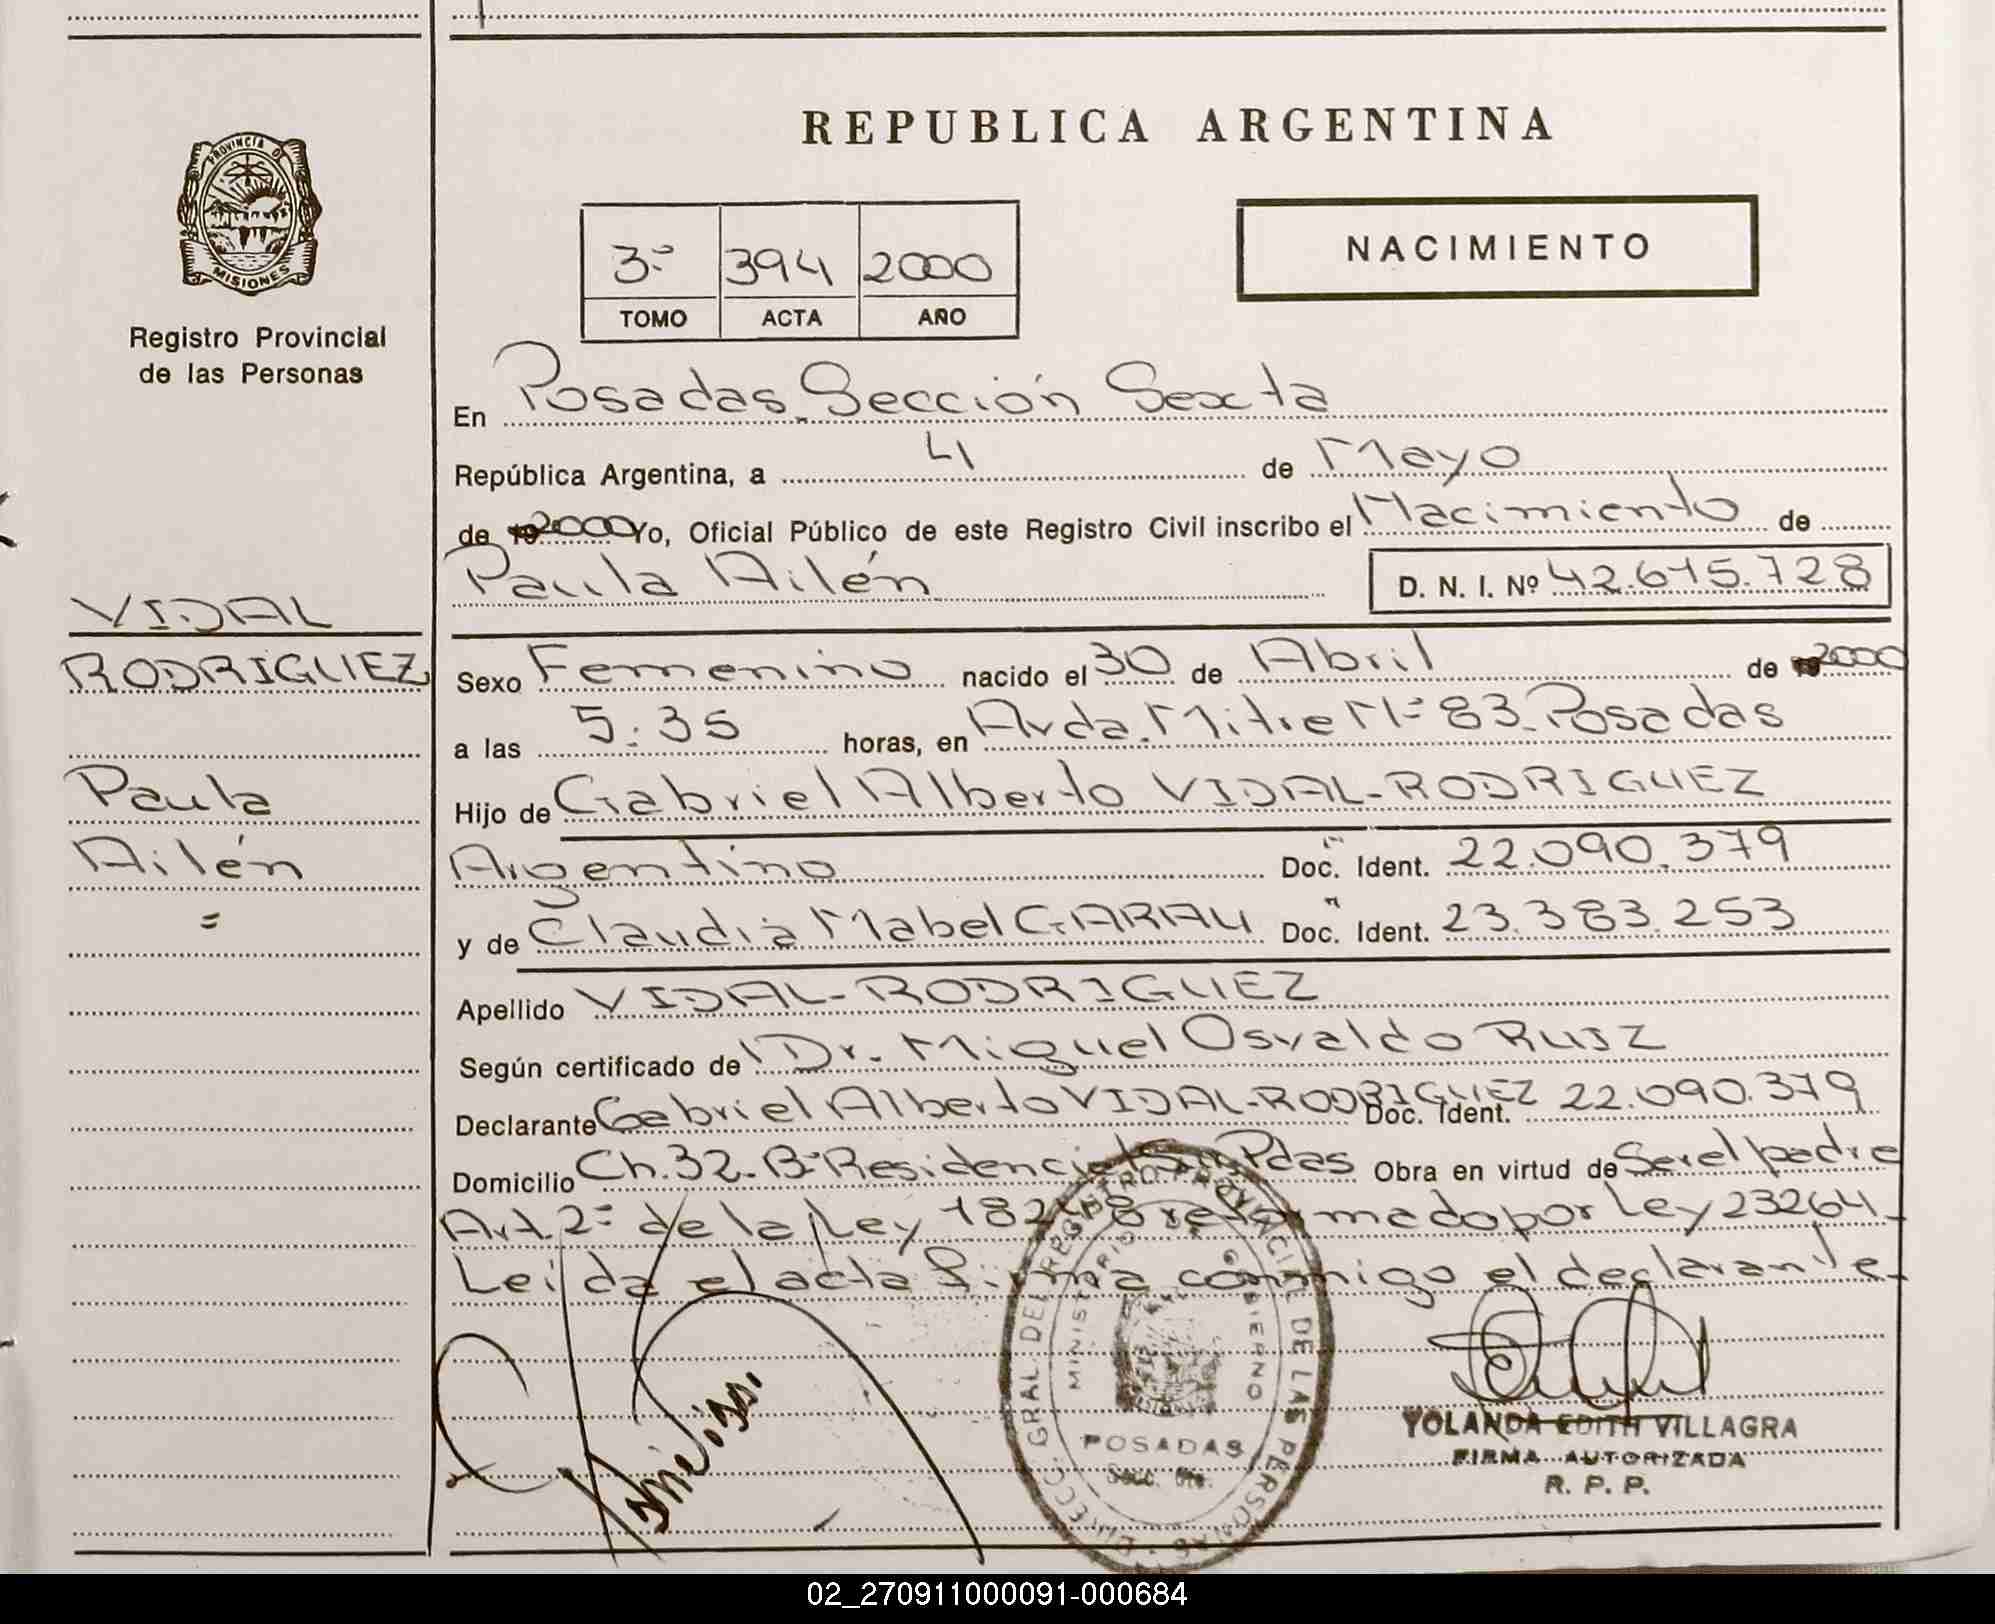 PROVINCIA D
MISIONES
Registro Provincial
de las Personas
VIDAL
RODRIGUEZ
Paula
Ailén
=
REPUBLICA ARGENTINA
3º 394 2000
TOMO ACTA AÑO
NACIMIENTO
En Posadas. Sección Sexta
República Argentina, a 4 de Mayo
de 2000 Yo, Oficial Público de este Registro Civil inscribo el Nacimiento de
Paula Ailén D. N. I. Nº 42.615.728
Sexo Femenino nacido el 30 de Abril de 2000
a las 5:35 horas, en Avda. Mitre Nº 83. Posadas
Hijo de Gabriel Alberto VIDAL-RODRIGUEZ
Argentino Doc. Ident. 22.090.379
y de Claudia Mabel GARAU Doc. Ident. 23.383.253
Apellido VIDAL-RODRIGUEZ
Según certificado de Dr. Miguel Osvaldo RUIZ
Declarante Gabriel Alberto VIDAL-RODRIGUEZ Doc. Ident. 22.090.379
Domicilio Ch. 32. Bº Residencial Pdas Obra en virtud de Ser el padre
Art. 2º de la Ley 18248 reformado por Ley 23264.
Leída el acta firma conmigo el declarante.
DIRECC. GRAL. DEL REGISTRO PROVINCIAL DE LAS PERSONAS
MINISTERIO GOBIERNO
POSADAS
Secc. 6ta.
YOLANDA EDITH VILLAGRA
FIRMA AUTORIZADA
R. P. P.
02_270911000091-000684